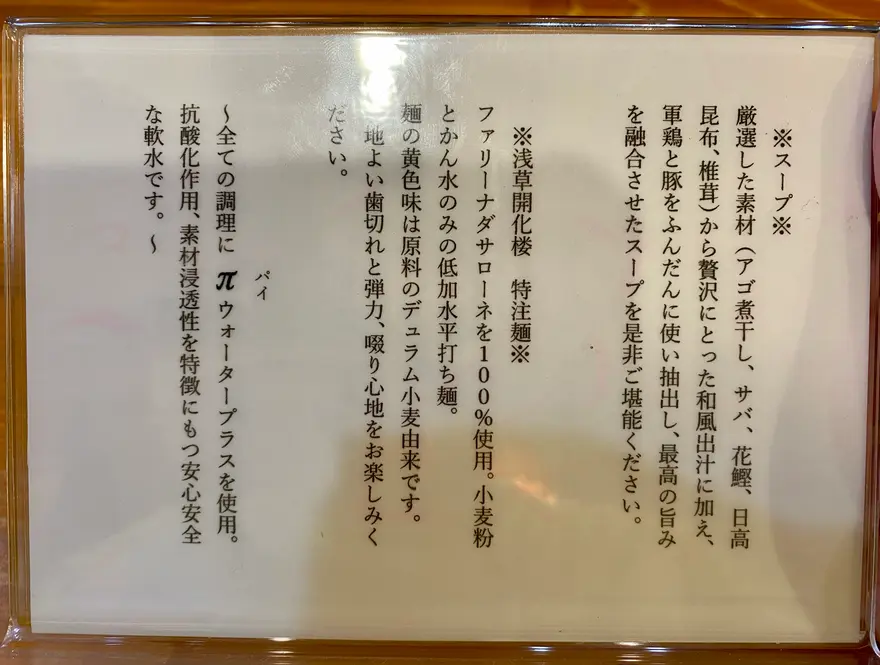 ※スープ※
厳選した素材（アゴ煮干し、サバ、花鰹、日高
昆布、椎茸）から贅沢にとった和風出汁に加え、
軍鶏と豚をふんだんに使い抽出し、最高の旨み
を融合させたスープを是非ご堪能ください。
※浅草開化楼　特注麺※
ファリーナダサローネを100％使用。小麦粉
とかん水のみの低加水平打ち麺。
麺の黄色味は原料のデュラム小麦由来です。
地よい歯切れと弾力、啜り心地をお楽しみく
ださい。
パイ
〜全ての調理に πウォータープラスを使用。
抗酸化作用、素材浸透性を特徴にもつ安心安全
な軟水です。〜